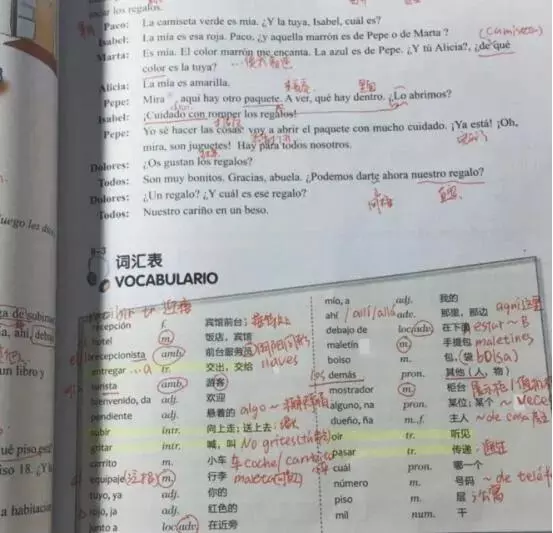 tocar los regalos.
Paco: La camiseta verde es mía. ¿Y la tuya, Isabel, cuál es?
Isabel: La mía es esa roja. Paco, ¿y aquella marrón es de Pepe o de Marta?
Marta: Es mía. El color marrón me encanta. La azul es de Pepe. ¿Y tú Alicia?, ¿de qué
color es la tuya?
Alicia: La mía es amarilla.
Pepe: Mira aquí hay otro paquete. A ver, qué hay dentro. ¿Lo abrimos?
Isabel: ¡Cuidado con romper los regalos!
Pepe: Yo sé hacer las cosas: voy a abrir el paquete con mucho cuidado. ¡Ya está! ¡Oh,
mira, son juguetes! Hay para todos nosotros.
Dolores: ¿Os gustan los regalos?
Todos: Son muy bonitos. Gracias, abuela. ¿Podemos darte ahora nuestro regalo?
Dolores: ¿Un regalo? ¿Y cuál es ese regalo?
Todos: Nuestro cariño en un beso.
9-3
词汇表
VOCABULARIO
recepción f. 宾馆前台;
hotel m. 饭店,宾馆
recepcionista amb. 前台服务员 llaves
entregar ...a tr. 交出,交给
turista amb. 游客
bienvenido, da adj. 欢迎
pendiente adj. 悬着的 algo ~
subir intr. 向上走;送上去;
gritar intr. 喊,叫 No grites
carrito m. 小车 车 coche / carrito
equipaje m. 行李 maleta
tuyo, ya adj. 你的
rojo, ja adj. 红色的
junto a loc.adv. 在近旁
mío, a adj. 我的
ahí / allí / allá adv. 那里,那边 aquí 这里
debajo de loc.adv. 在下面 estar ~ B
maletín m. 手提包 maletines
bolso m. 包,(袋 bolsa)
los demás pron. 其他(人,物)
mostrador m. 柜台
alguno, na pron. 某位;某个 ~ vece
dueño, ña m.,f. 主人 ~ de casa
oír tr. 听见
pasar tr. 传递,
cuál pron. 哪一个
número m. 号码 ~ de teléf
piso m. 层
mil num. 千
uego les da
ga de subir
a, ahí, debajo
un libro y
ué piso est
iso 18. ¿Y l
a habitación